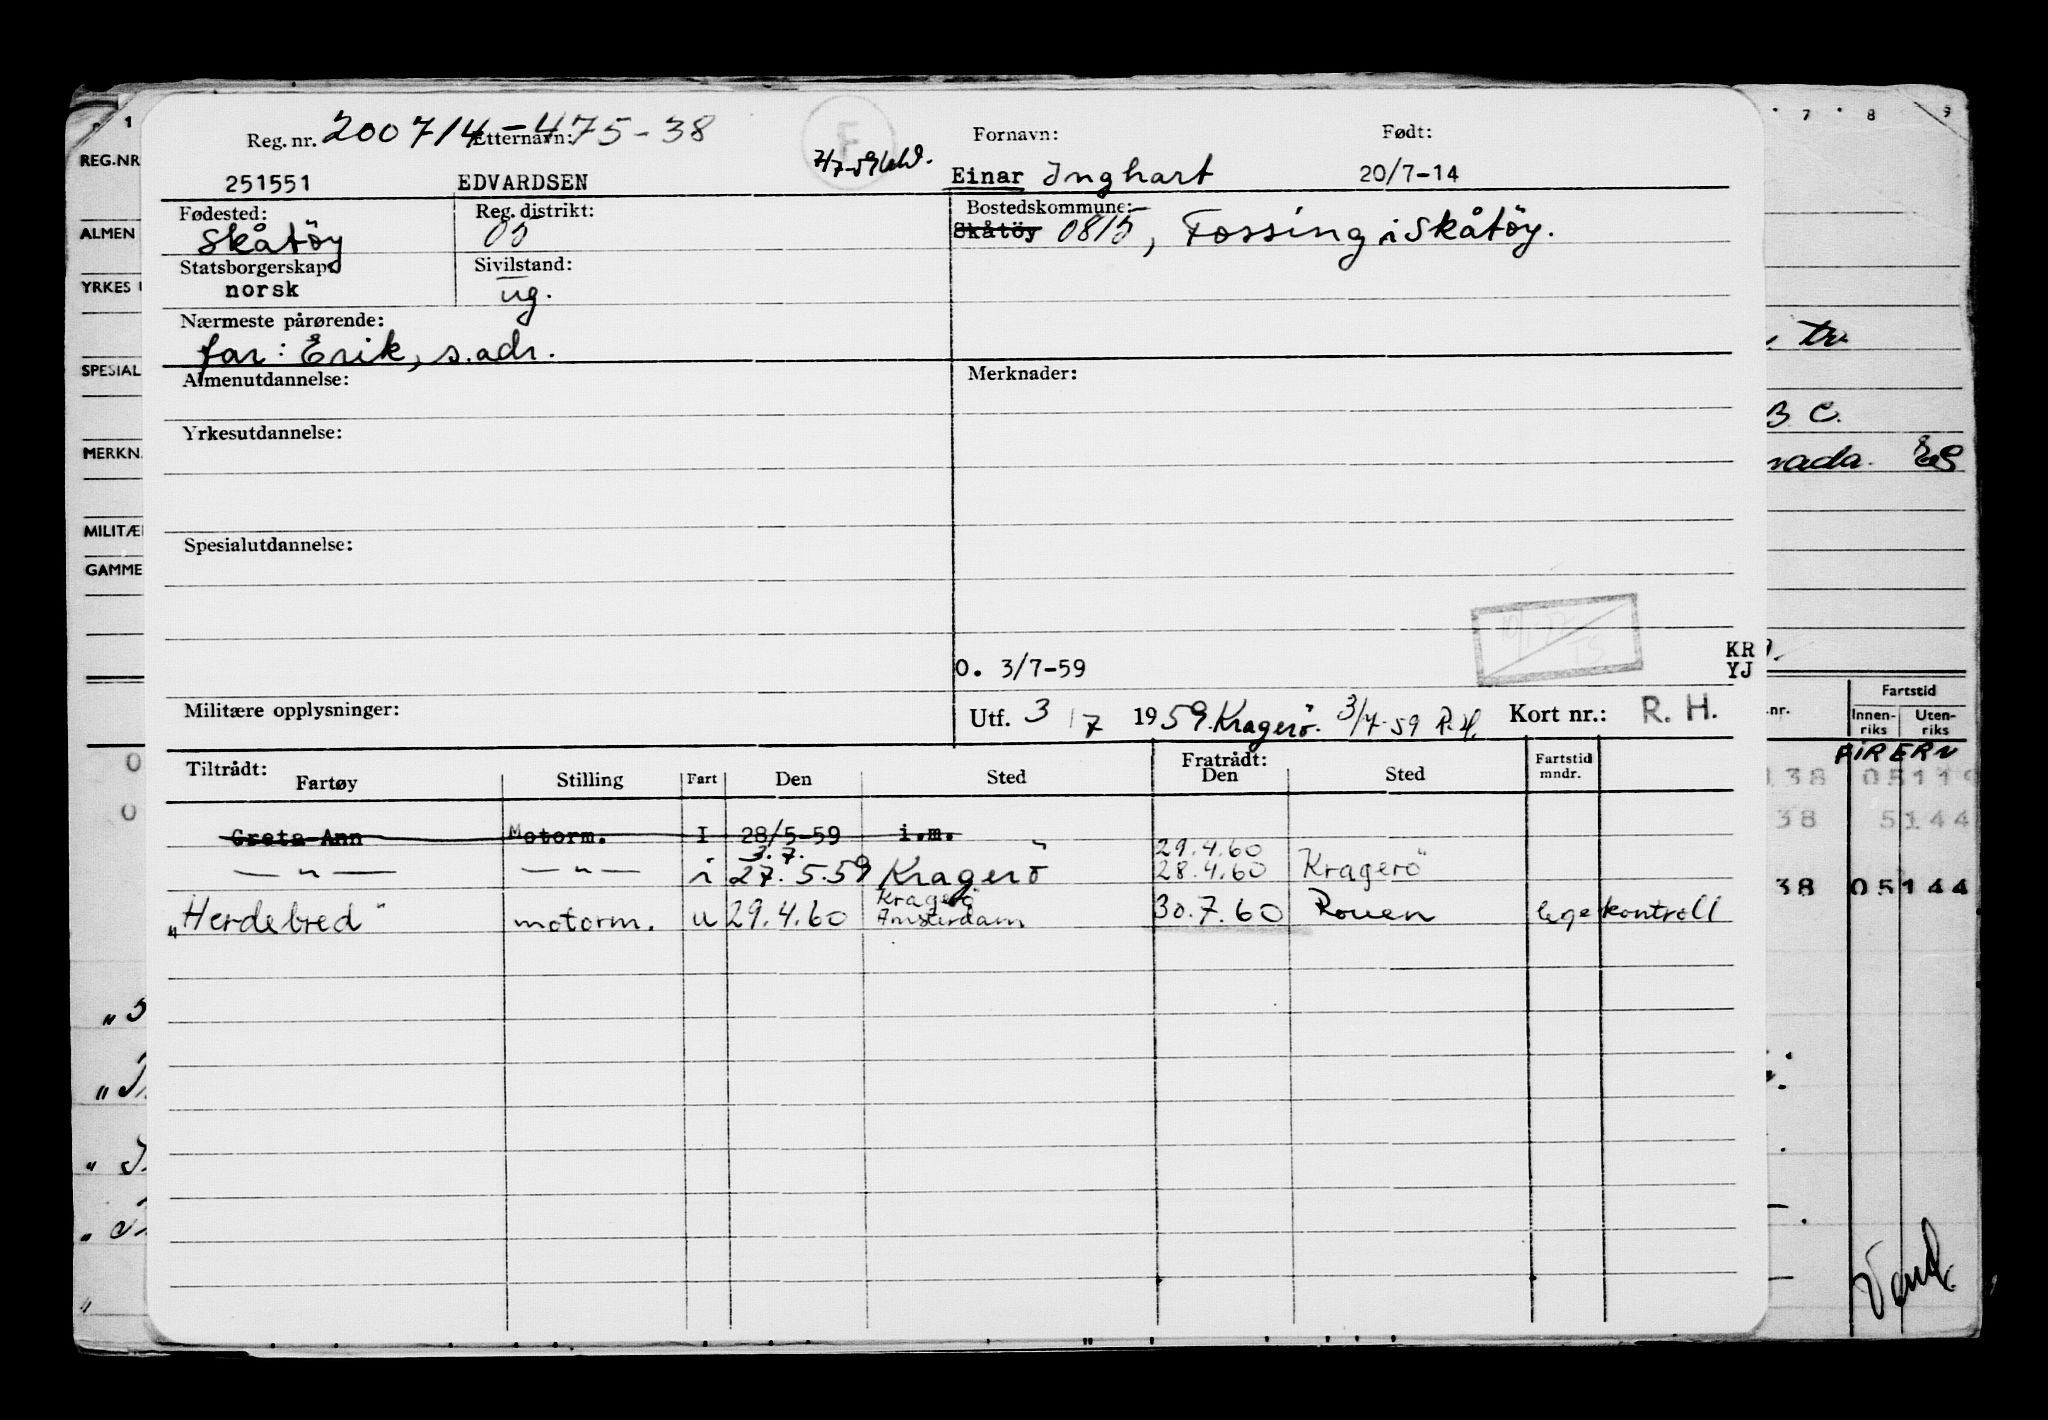 Reg. nr. 200714-475-38 Etternavn: F Fornavn: Født:
251551 EDVARDSEN Einar Inghart 20/7-14
Fødested: Reg. distrikt: Bostedskommune:
Skåtöy 05 Skåtöy 0815, Fossing i Skåtöy.
Statsborgerskap: Sivilstand:
norsk ug.
Nærmeste pårørende:
far: Erik, s.adr.
Almenutdannelse: Merknader:
Yrkesutdannelse:
Spesialutdannelse:
O. 3/7-59 KR
YJ
Militære opplysninger: Utf. 3/7 1959. Kragerö. 3/7-59 R.H. Kort nr.: R. H.
Tiltrådt: Fratrådt: Fartstid
Fartøy Stilling Fart Den Sted Den Sted mndr.
Greta-Ann Motorm. I 28/5-59 i.m.
3.7. 29.4.60
— " — — " — i 27.5.59 Kragerö 28.4.60 Kragerö
Kragerö
"Herdebred" motorm. u 29.4.60 Amsterdam 30.7.60 Rouen legekontroll
1
REG.NR
ALMEN
YRKES
SPESIAL
MERKN.
MILITÆ
GAMME
0
0
7 8 9
tr.
B C.
nada. ES
nr. Fartstid
Innen-riks Uten-riks
38 05119
38 5144
38 05144
Vend.